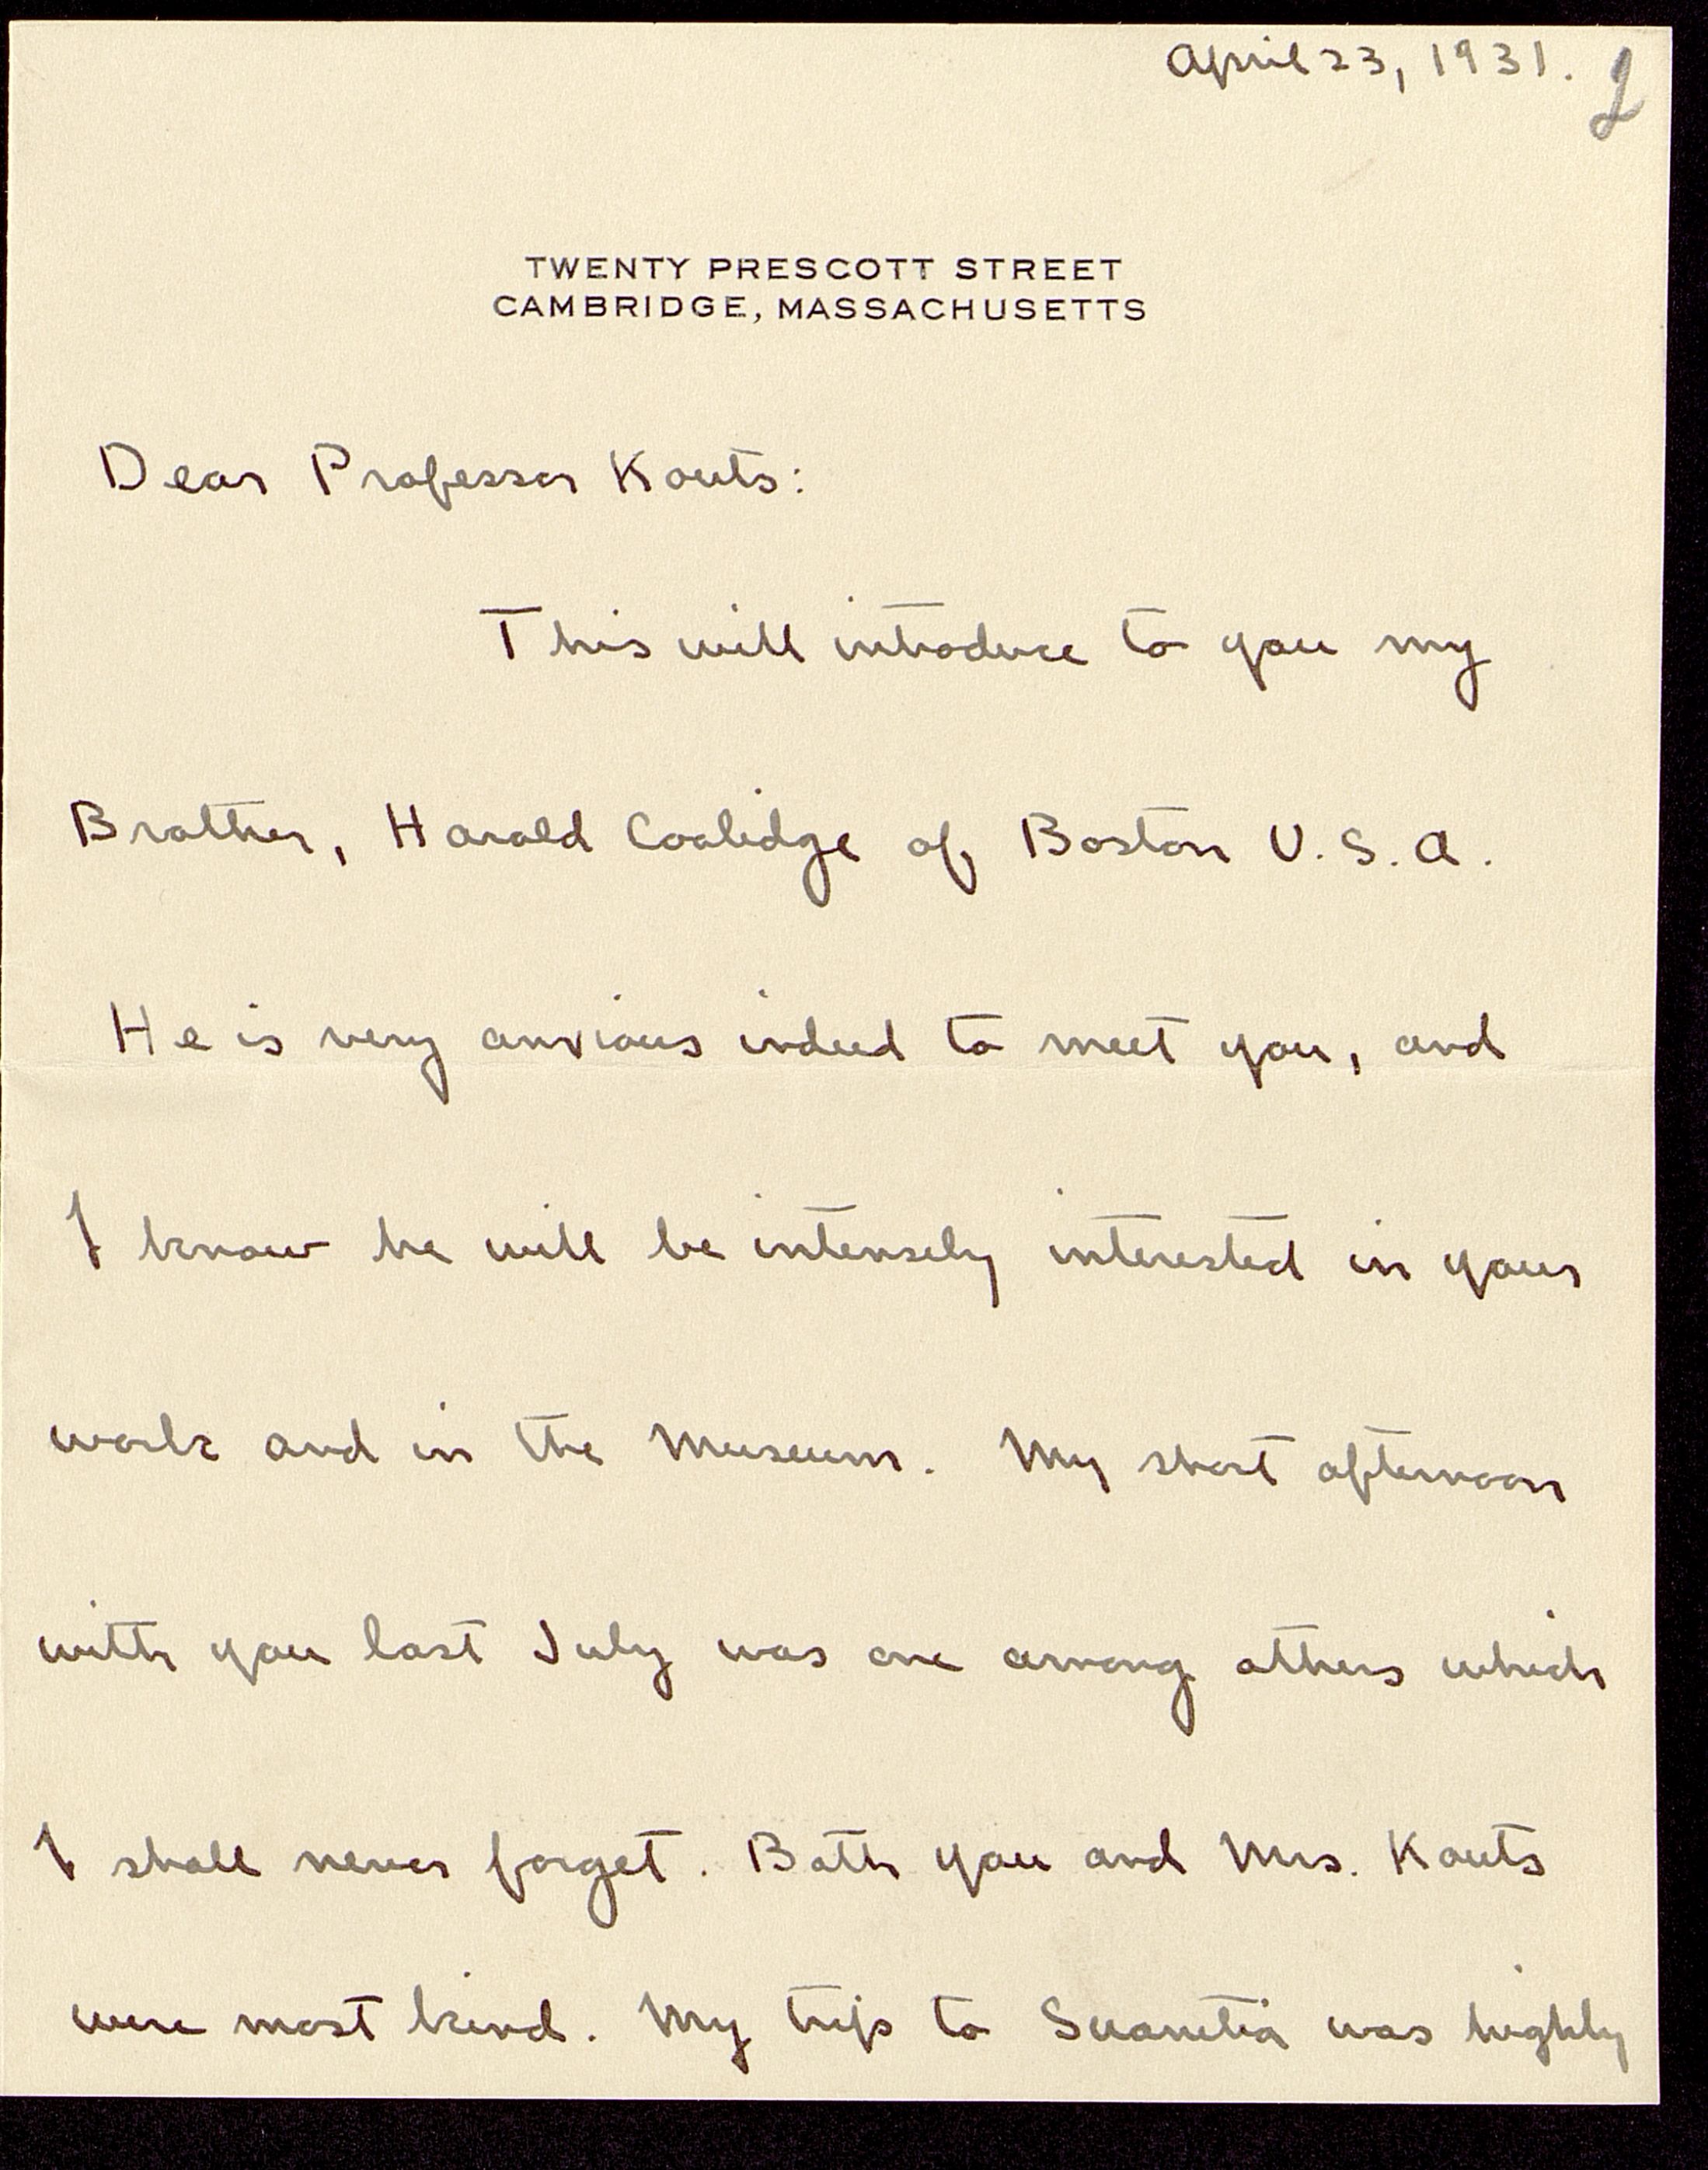 April 23, 1931.
TWENTY PRESCOTT STREET
CAMBRIDGE, MASSACHUSETTS
Dear Professor Kouts:
This will introduce to you my
Brother, Harold Coolidge of Boston U.S.A.
He is very anxious indeed to meet you, and
I know he will be intensely interested in your
work and in the Museum. My short afternoon
with you last July was one among others which
I shall never forget. Both you and Mrs. Kouts
were most kind. My trip to Suanetia was highly